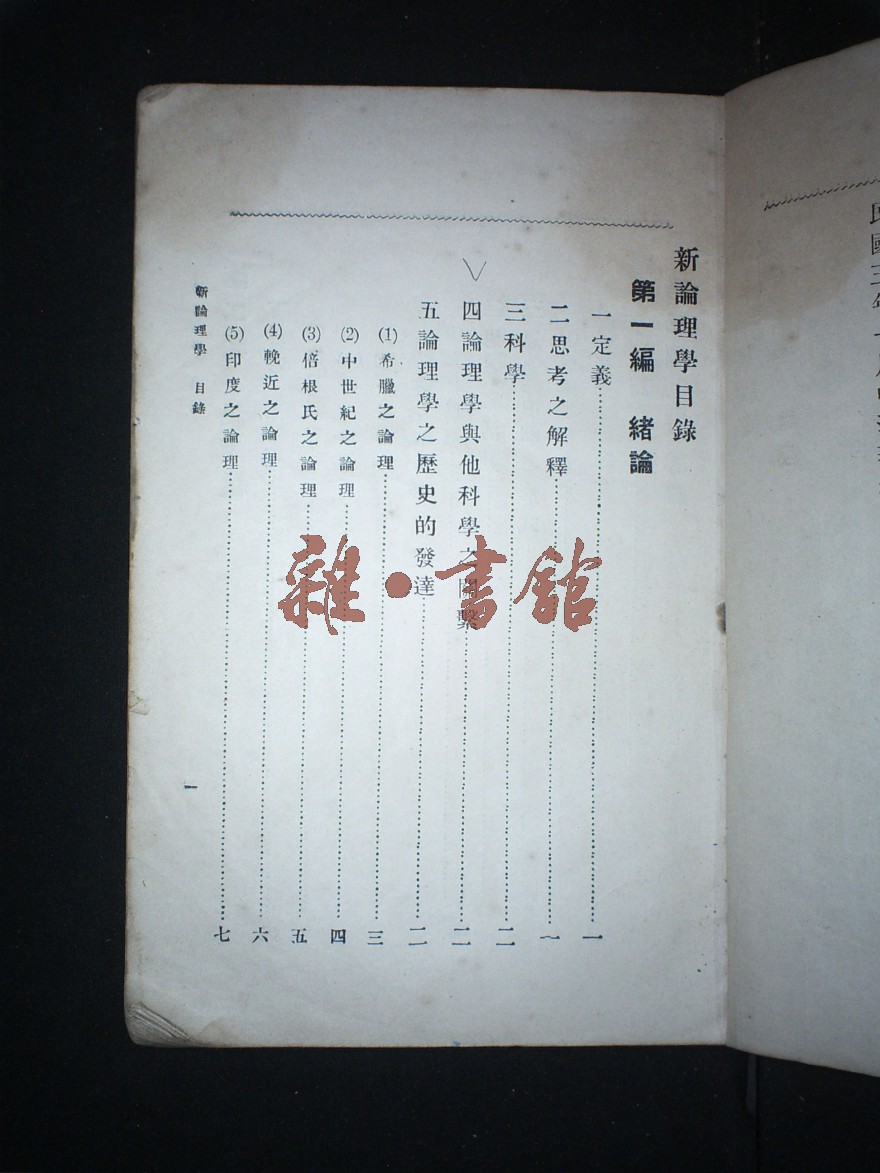 新論理學目錄
第一編　緒論
一定義………一
二思考之解釋………一
三科學………二
四論理學與他科學之關繫………二
五論理學之歷史的發達………二
(1)希臘之論理………三
(2)中世紀之論理………四
(3)倍根氏之論理………五
(4)輓近之論理………六
(5)印度之論理………七
新論理學　目錄
一
雜·書館
民國三年十